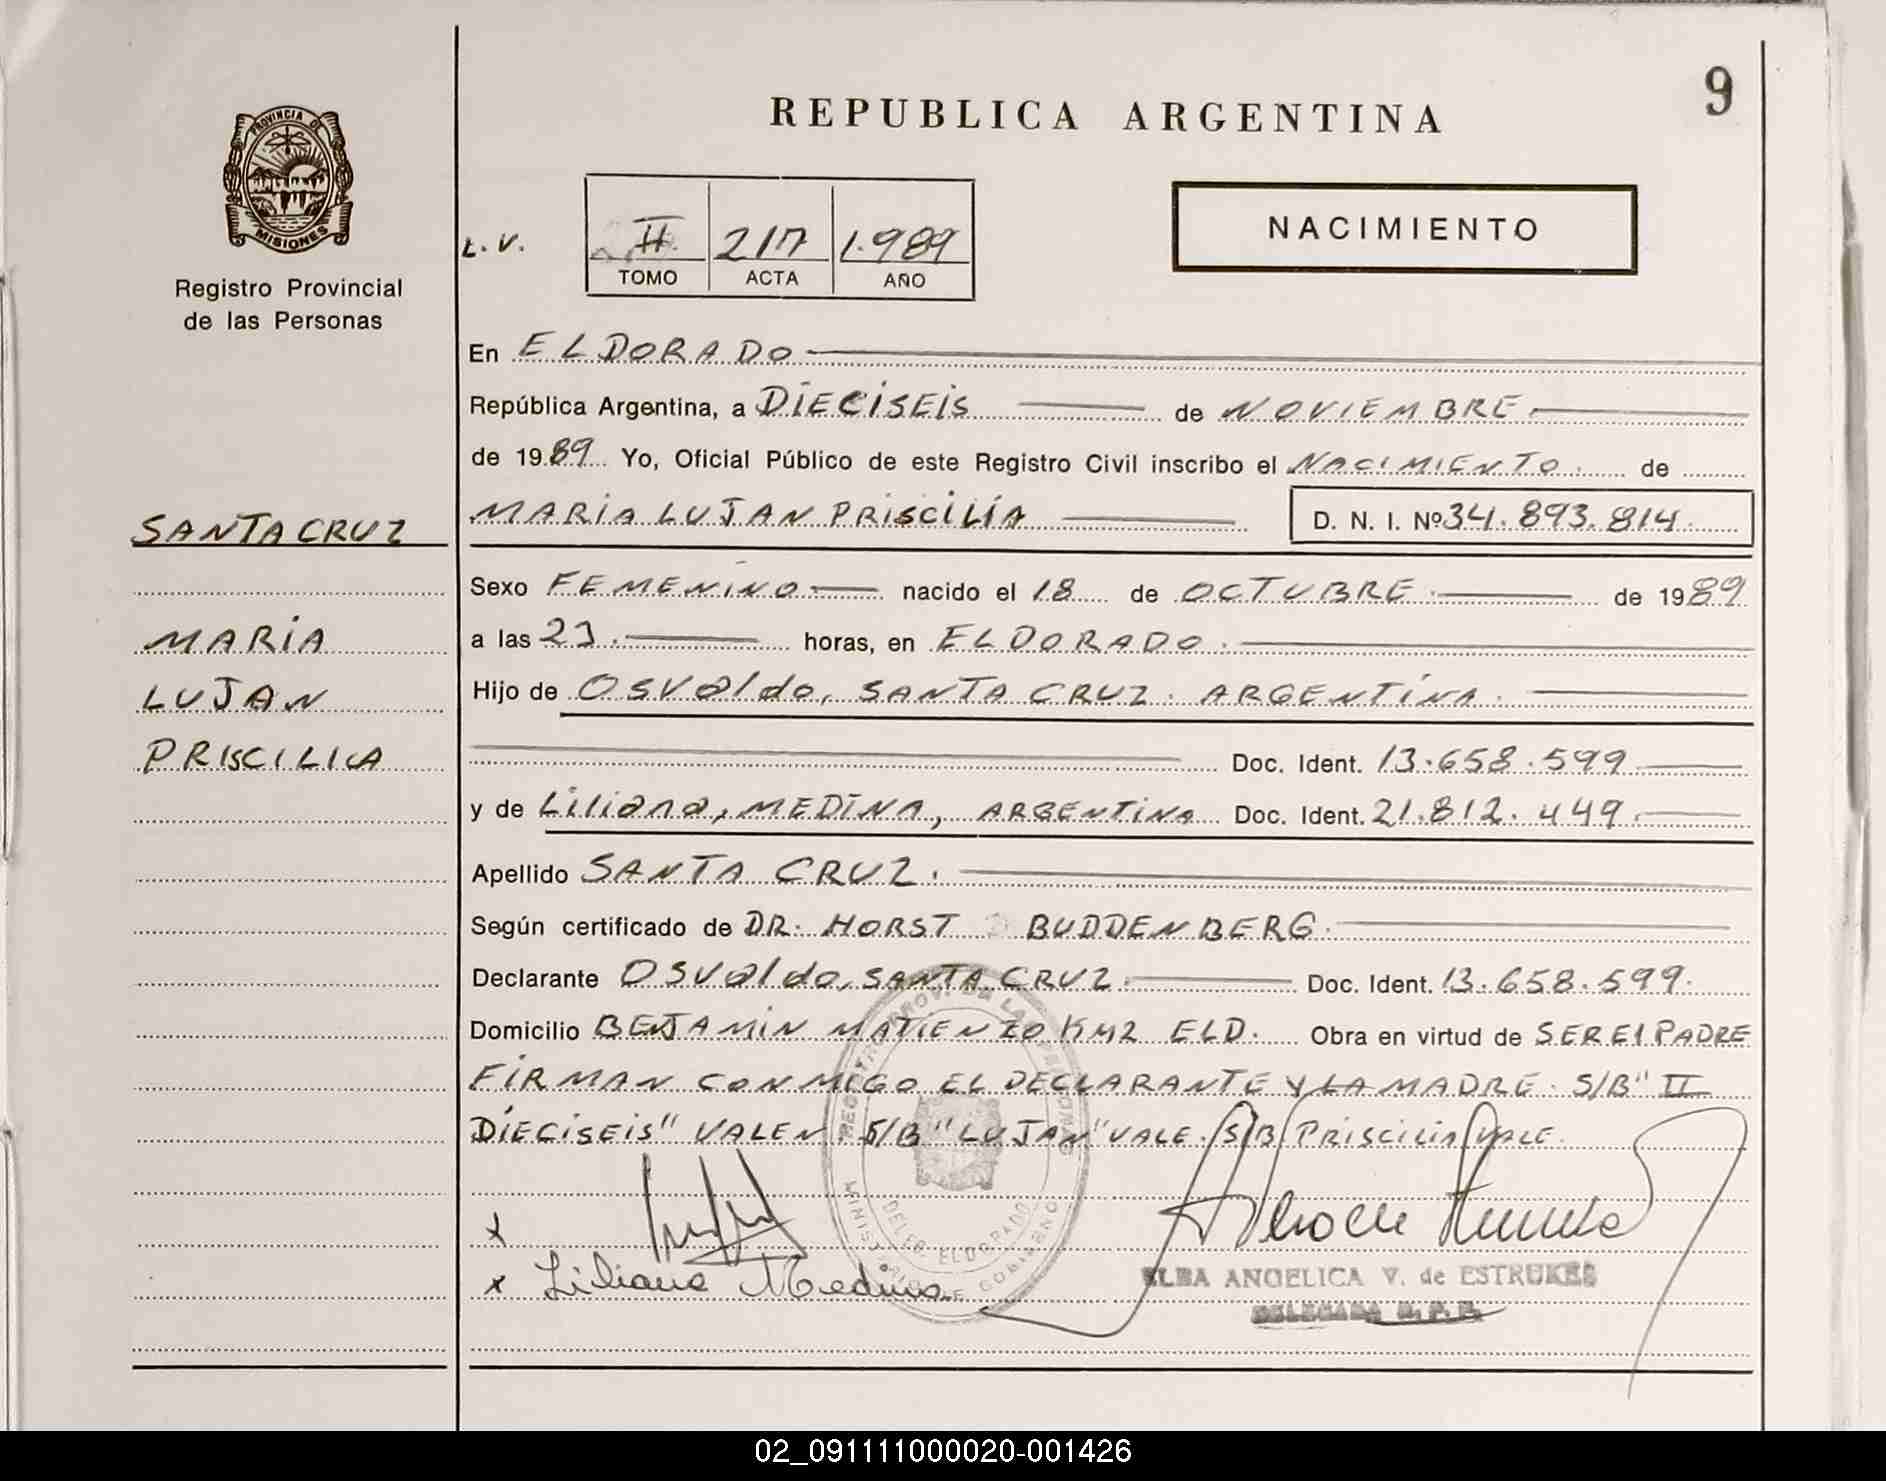 9
REPUBLICA ARGENTINA
PROVINCIA DE
MISIONES
Registro Provincial
de las Personas
L.V.
II 217 1.989
TOMO ACTA AÑO
NACIMIENTO
En ELDORADO
República Argentina, a DIECISEIS de NOVIEMBRE
de 1989 Yo, Oficial Público de este Registro Civil inscribo el NACIMIENTO. de
MARIA LUJAN PRISCILIA D. N. I. Nº 34.893.814
SANTA CRUZ
MARIA
LUJAN
PRISCILIA
Sexo FEMENINO nacido el 18 de OCTUBRE de 1989
a las 23. horas, en ELDORADO.
Hijo de Osvaldo, SANTA CRUZ. ARGENTINA.
Doc. Ident. 13.658.599
y de Liliana, MEDINA, ARGENTINA Doc. Ident. 21.812.449.
Apellido SANTA CRUZ.
Según certificado de DR. HORST BUDDENBERG.
Declarante Osvaldo, SANTA CRUZ. Doc. Ident. 13.658.599.
Domicilio BENJAMIN MATIENZO KM2 ELD. Obra en virtud de SER El PADRE
FIRMAN CONMIGO EL DECLARANTE Y LA MADRE. S/B" II
DIECISEIS" VALEN. S/B "LUJAN" VALE. /S/B/ PRISCILIA/VALE.
x
x Liliana Medina
DELEG. ELDORADO
ELBA ANGELICA V. de ESTRUKES
DELEGADA R. P. P.
02_091111000020-001426